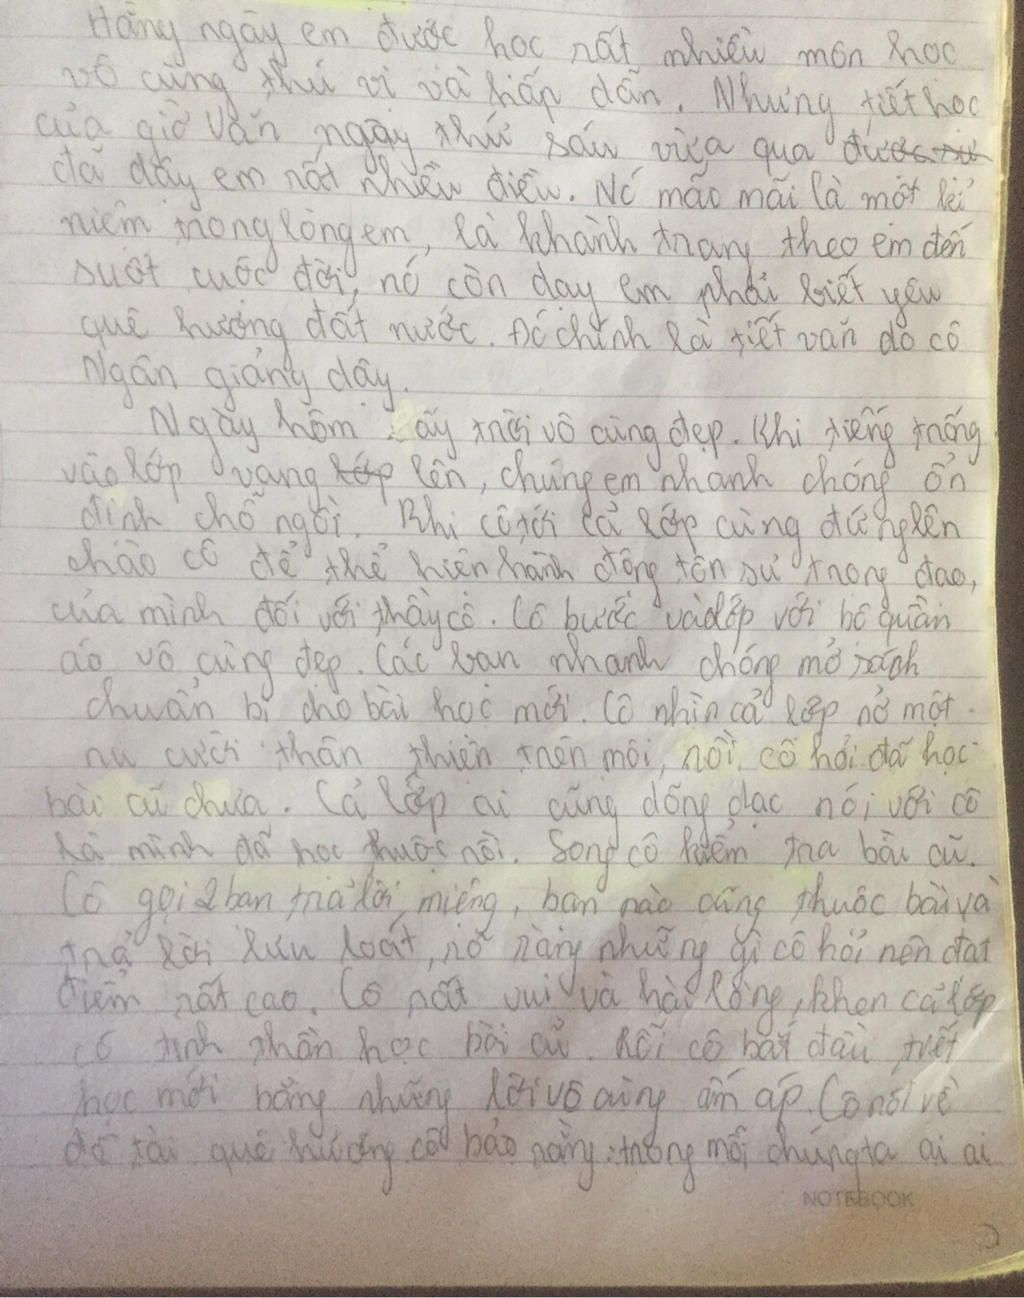 Hằng ngày em được học rất nhiều môn học
vô cùng thú vị và hấp dẫn. Nhưng tiết học
của giờ Văn ngày thứ sáu vừa qua được
đã dậy em rất nhiều điều. Nó mão mãi là một kỉ
niệm trong lòng em, là khành trang theo em đến
suốt cuộc đời, nó còn dạy em phải biết yêu
quê hương đất nước. Đó chính là tiết văn do cô
Ngân giảng dậy.
Ngày hôm ấy trời vô cùng đẹp. Khi tiếng trống
vào lớp vang lớp lên, chúng em nhanh chóng ổn
định chỗ ngồi. Khi cô tới cả lớp cùng đứng lên
chào cô để thể hiện hành động tôn sư trọng đạo,
của mình đối với thầy cô. Cô bước vào lớp với bộ quần
áo vô cùng đẹp. Các bạn nhanh chóng mở sách
chuẩn bị cho bài học mới. Cô nhìn cả lớp nở một
nụ cười thân thiện trên môi, rồi cô hỏi đã học
bài cũ chưa. Cả lớp ai cũng dống dạc nói với cô
là mình đã học thuộc rồi. Song cô kiểm tra bài cũ.
Cô gọi 2 bạn trả lời miệng, bạn nào cũng thuộc bài và
trả lời lưu loát, rõ ràng những gì cô hỏi nên đạt
điểm rất cao. Cô rất vui và hài lòng, khen cả lớp
có tinh thần học bài cũ. Rồi cô bắt đầu tiết
học mới bằng những lời vô cùng ấm áp. Cô nói về
đề tài quê hương cô bảo rằng: trong mỗi chúng ta ai ai
NOTEBOOK